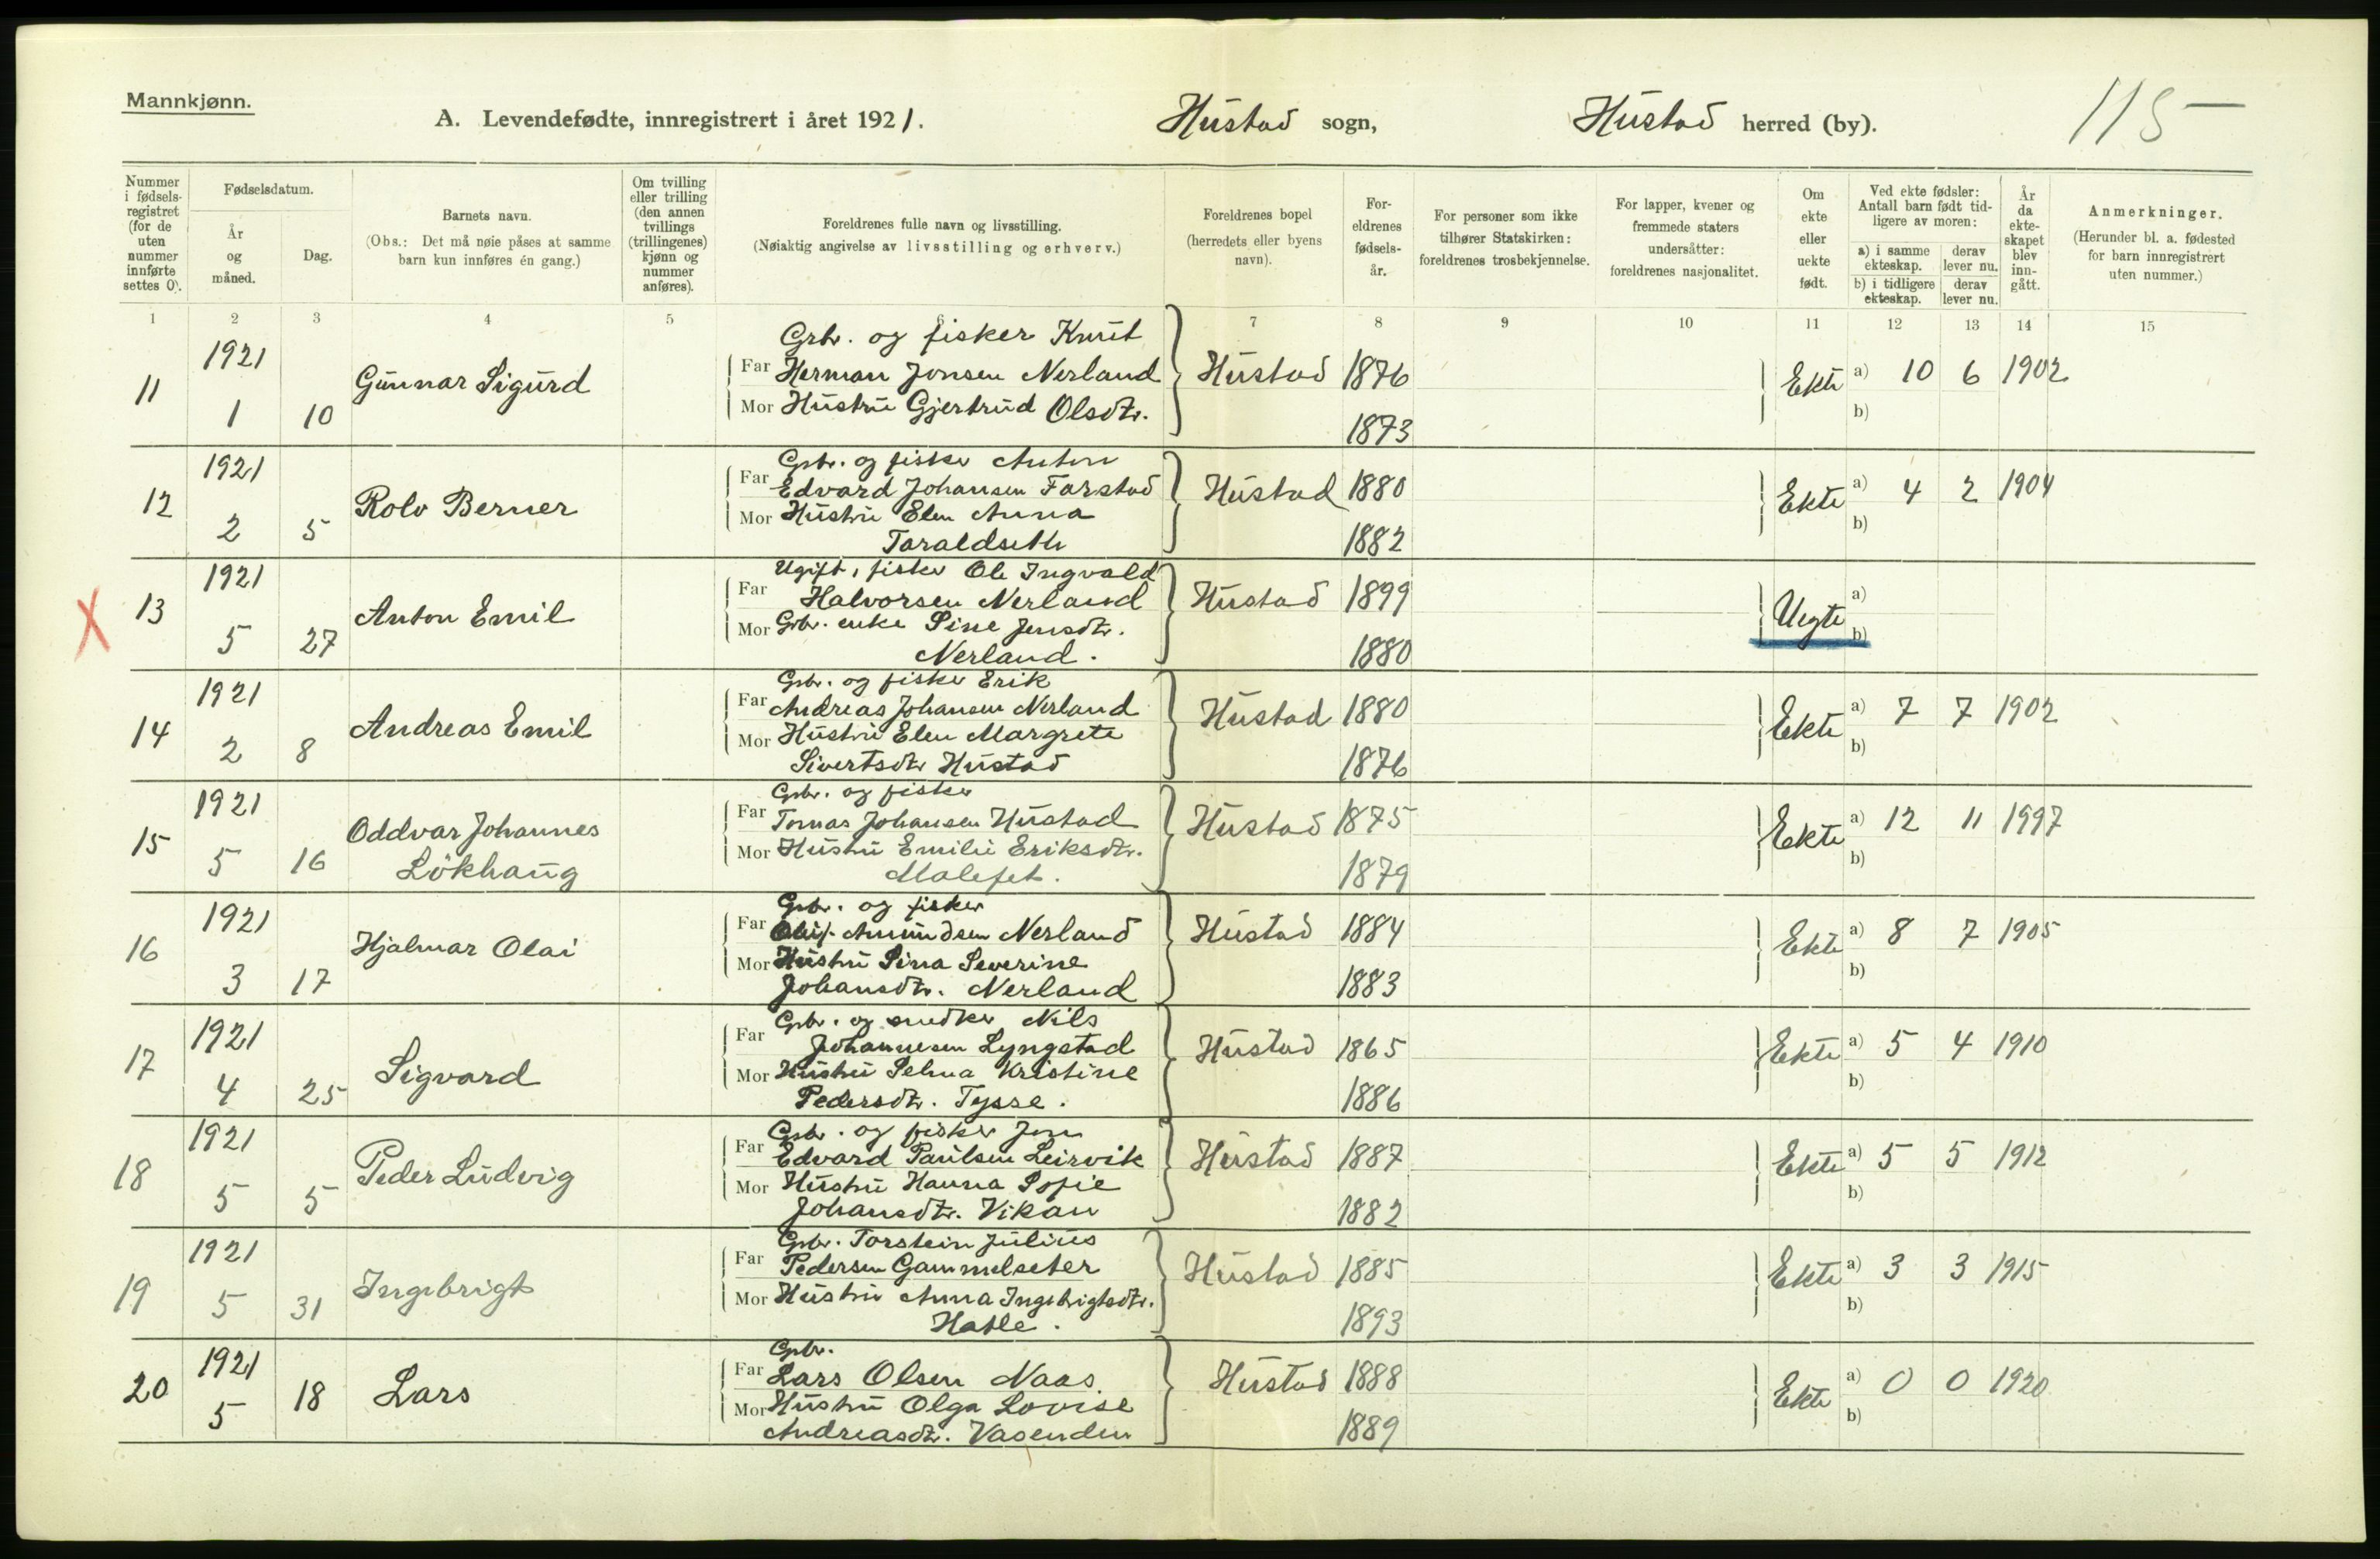 Mannkjønn.
A. Levendefødte, innregistrert i året 1921. Hustad sogn, Hustad herred (by). 115
Nummer i fødselsregistret (for de uten nummer innførte settes 0).
Fødselsdatum.
År og måned.
Dag.
Barnets navn.
(Obs.: Det må nøie påses at samme barn kun innføres én gang.)
Om tvilling eller trilling (den annen tvillings (trillingenes) kjønn og nummer anføres).
Foreldrenes fulle navn og livsstilling.
(Nøiaktig angivelse av livsstilling og erhverv.)
Foreldrenes bopel (herredets eller byens navn).
Foreldrenes fødselsår.
For personer som ikke tilhører Statskirken: foreldrenes trosbekjennelse.
For lapper, kvener og fremmede staters undersåtter: foreldrenes nasjonalitet.
Om ekte eller uekte født.
Ved ekte fødsler: Antall barn født tidligere av moren:
a) i samme ekteskap.
derav lever nu.
b) i tidligere ekteskap.
derav lever nu.
År da ekteskapet blev inngått.
Anmerkninger.
(Herunder bl. a. fødested for barn innregistrert uten nummer.)
1 2 3 4 5 6 7 8 9 10 11 12 13 14 15
Grbr. og fisker Knut
11 1921 Gunnar Sigurd Far Herman Jonsen Nerland Hustad 1876 Ekte a) 10 6 1902
1 10 Mor Hustru Gjertrud Olsdtr. 1873 b)
Grbr. og fisker Anton
12 1921 Rolv Berner Far Edvard Johansen Farstad Hustad 1880 Ekte a) 4 2 1904
2 5 Mor Hustru Elen Anna b)
Taraldseth 1882
Ugift, fisker Ole Ingvald
X 13 1921 Anton Emil Far Halvorsen Nerland Hustad 1899 Uegte a)
5 27 Mor Grbr. enke Sine Jensdtr. b)
Nerland. 1880
Grbr. og fisker Erik
14 1921 Andreas Emil Far Andreas Johansen Nerland Hustad 1880 Ekte a) 7 7 1902
2 8 Mor Hustru Elen Margrete b)
Sivertsdtr Hustad 1876
Grbr. og fisker
15 1921 Oddvar Johannes Far Tomas Johansen Hustad Hustad 1875 Ekte a) 12 11 1997
5 16 Lökhaug Mor Hustru Emilie Eriksdtr. b)
Malefet. 1879
Grbr. og fisker
16 1921 Hjalmar Olai Far Amundsen Nerland Hustad 1884 Ekte a) 8 7 1905
3 17 Mor Hustru Sina Severine b)
Johansdtr. Nerland 1883
Grbr. og snedker Nils
17 1921 Sigvard Far Johannesen Lyngstad Hustad 1865 Ekte a) 5 4 1910
4 25 Mor Hustru Selma Kristine b)
Pedersdtr. Tysse. 1886
Grbr. og fisker Jon
18 1921 Peder Ludvig Far Edvard Paulsen Leirvik Hustad 1887 Ekte a) 5 5 1912
5 5 Mor Hustru Hanna Sofie b)
Johansdtr. Vikan 1882
Grbr. Torstein Julius
19 1921 Ingebrigt Far Pedersen Gammelseter Hustad 1885 Ekte a) 3 3 1915
5 31 Mor Hustru Anna Ingebrigtsdtr. b)
Hatle. 1893
Grbr.
20 1921 Lars Far Lars Olsen Naas Hustad 1888 Ekte a) 0 0 1920
5 18 Mor Hustru Olga Lovise b)
Andreasdtr. Vasenden 1889